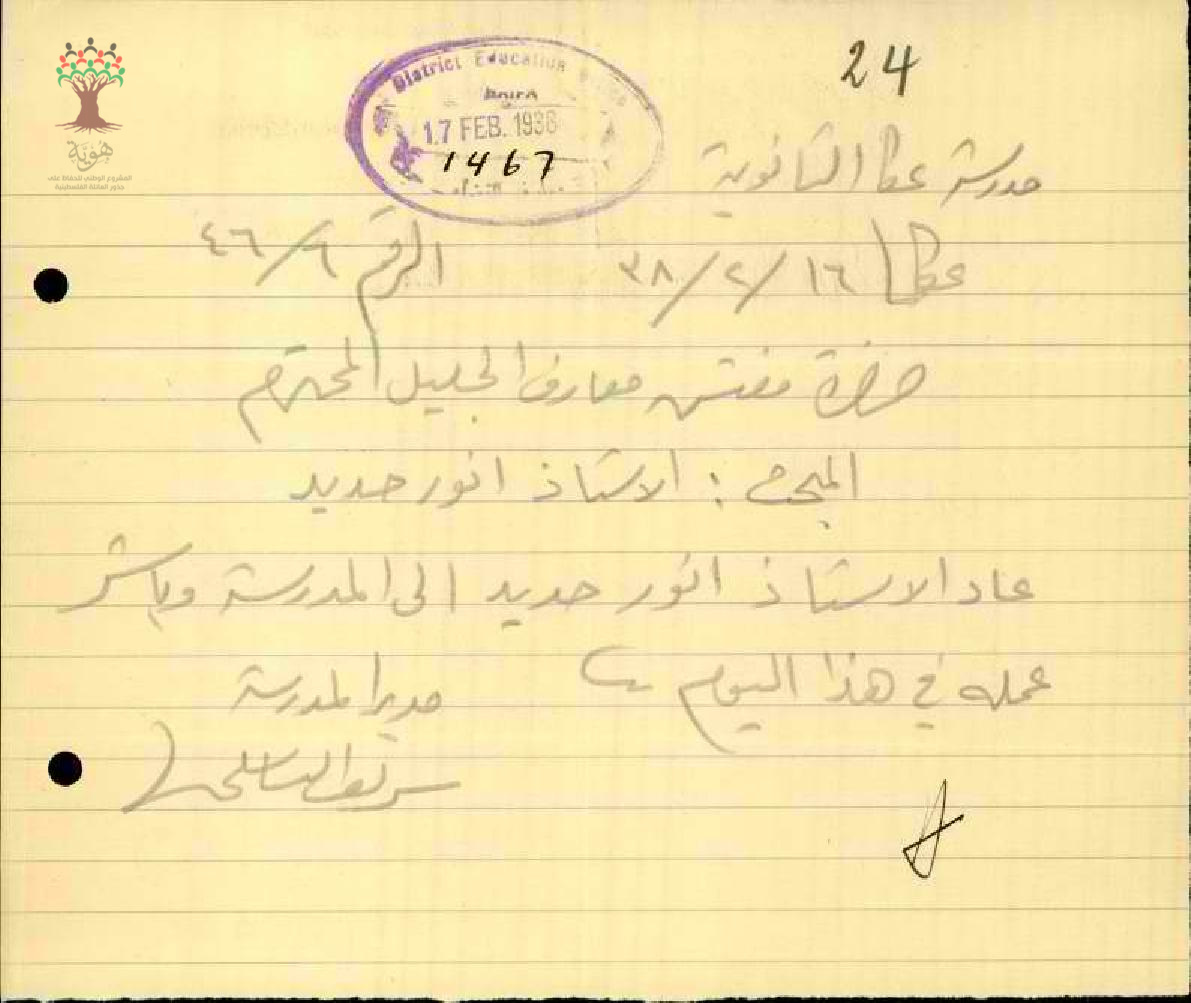 24
هوية
المشروع الوطني للحفاظ على
جذور العائلة الفلسطينية
District Education
17 FEB. 1938
1467
مدرسة عكا الثانوية
عكا ١٦/٢/٣٨ الرقم ٤٦/٦
حضرة مفتش معارف الجليل المحترم
المبحث : الاستاذ انور حديد
عاد الاستاذ انور حديد الى المدرسة وباشر
عمله في هذا اليوم
مدير المدرسة